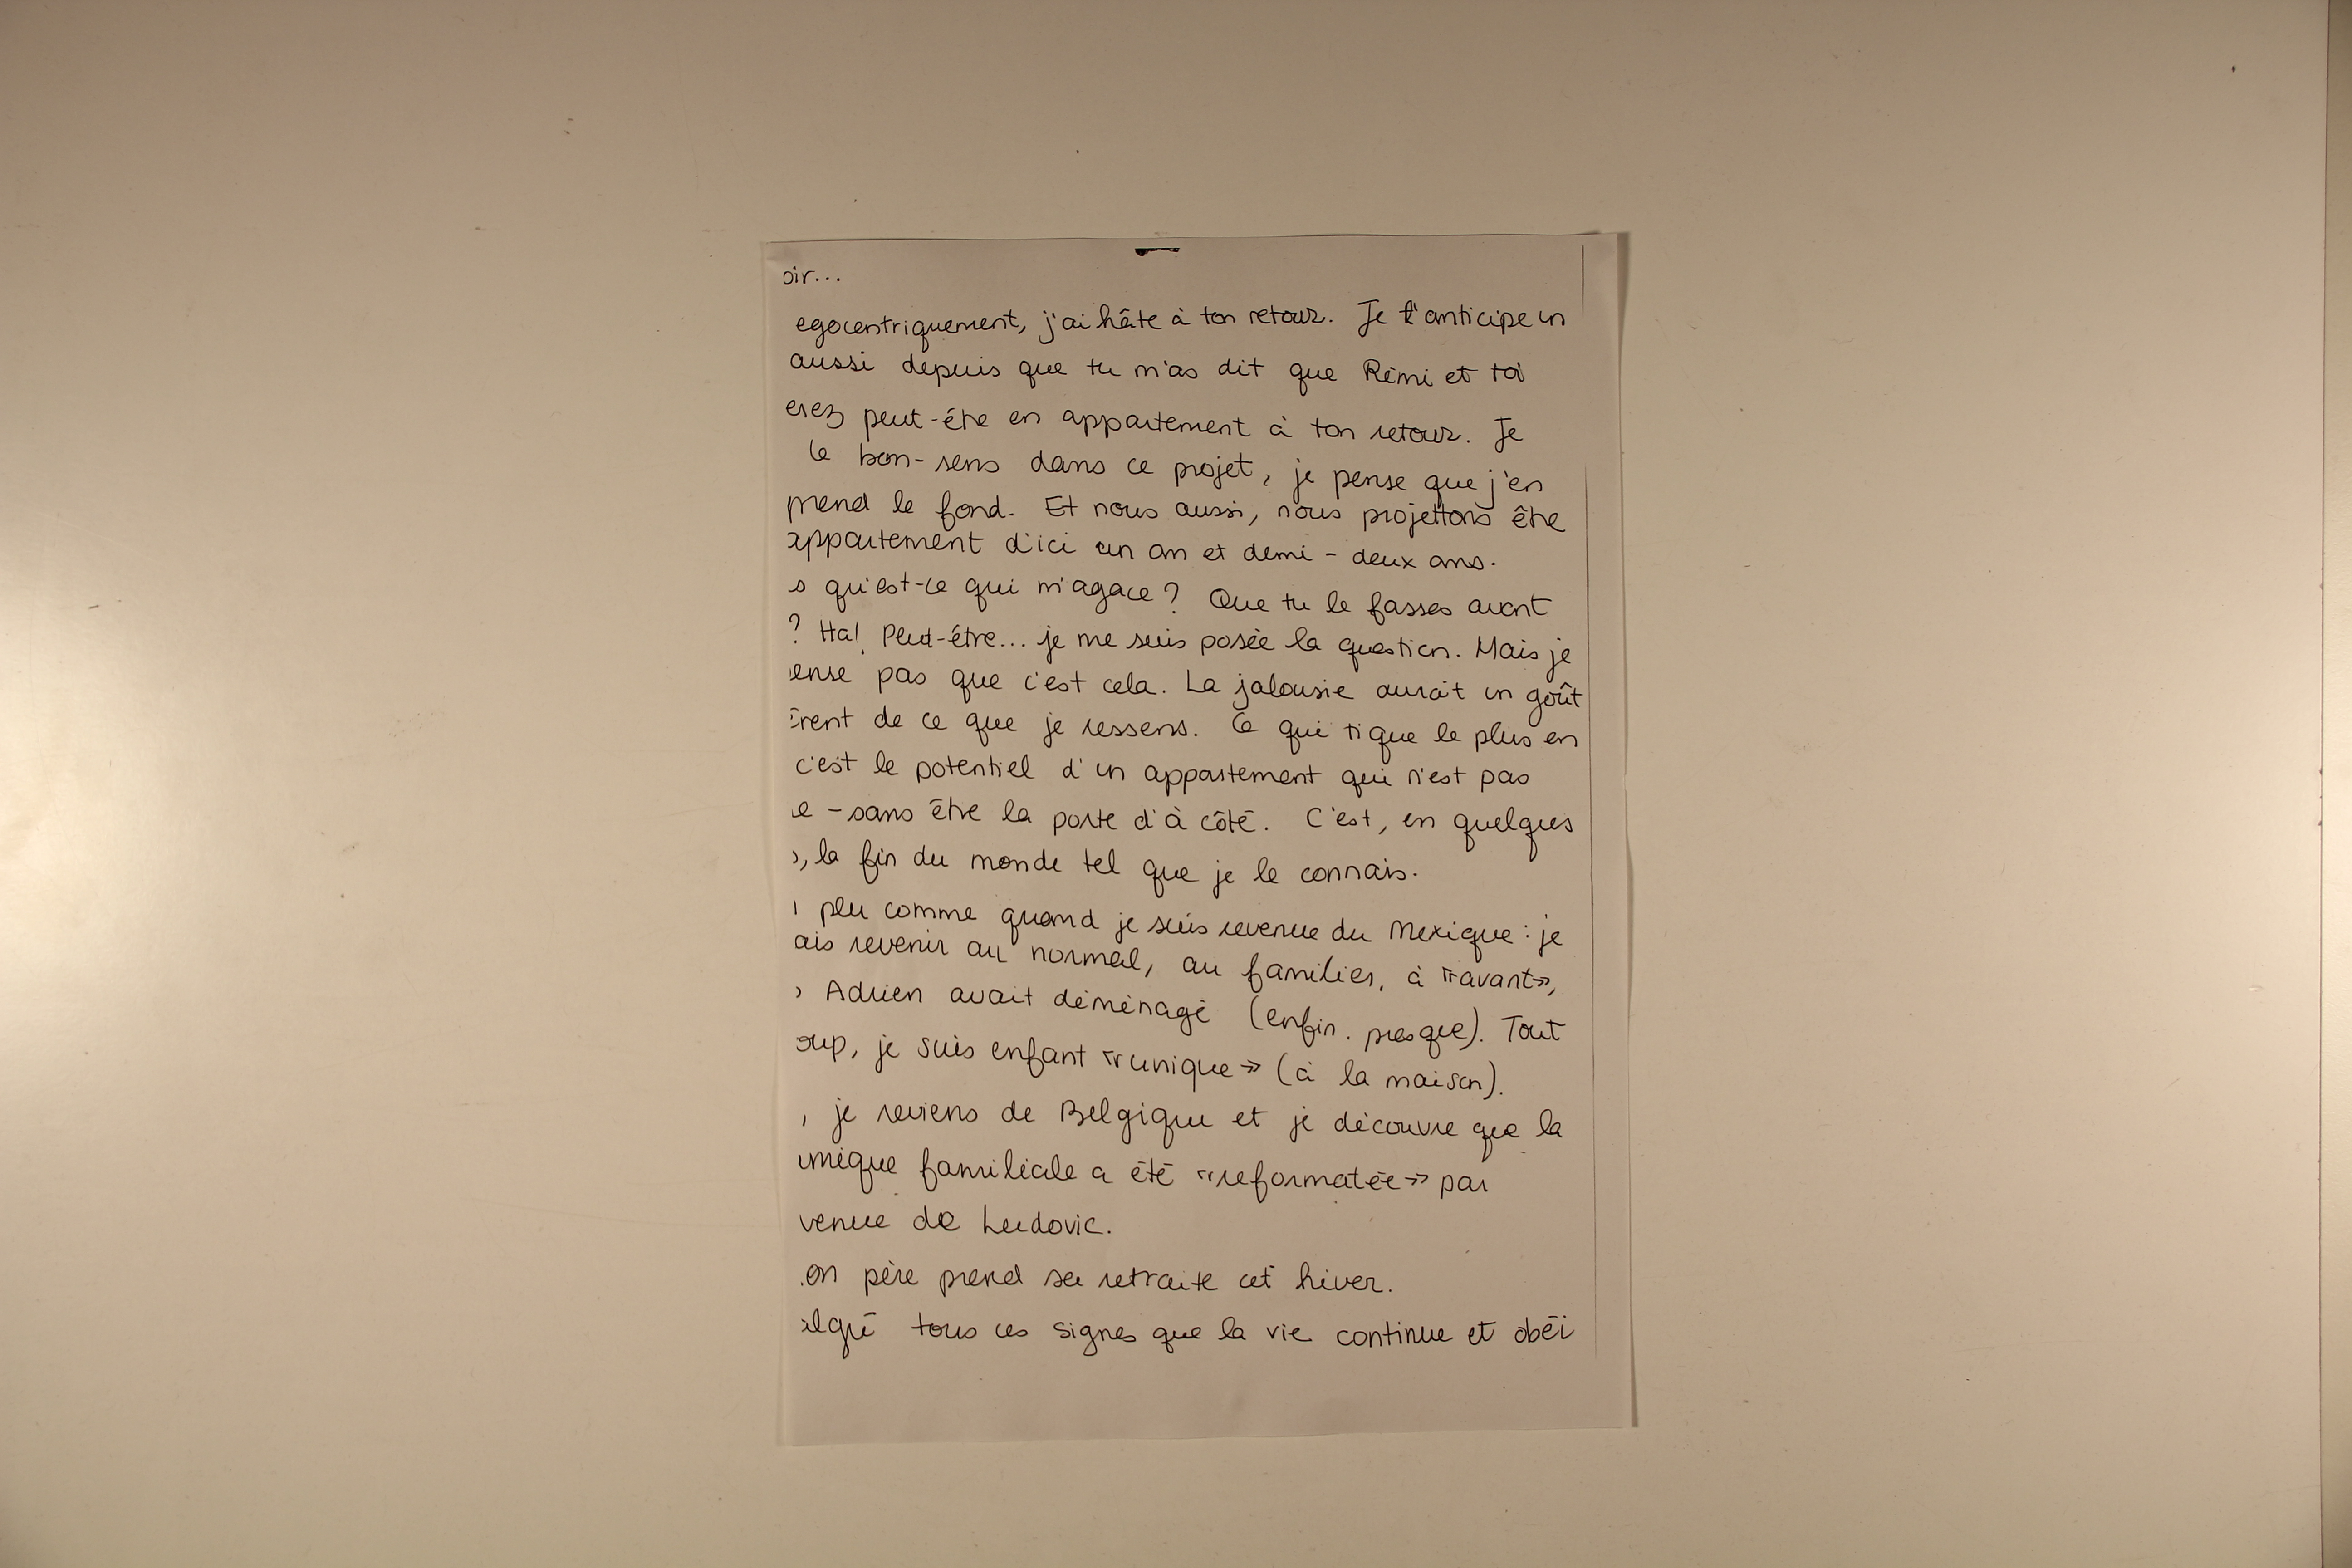 oir...
egocentriquement, j'ai hâte à ton retour. Je t'anticipe un
aussi depuis que tu m'as dit que Rémi et toi
erez peut-être en appartement à ton retour. Je
le bon-sens dans ce projet, je pense que j'en
prend le fond. Et nous aussi, nous projettons être
appartement d'ici un an et demi - deux ans.
s qu'est-ce qui m'agace? Que tu le fasses avant
? Ha! Peut-être... je me suis posée la question. Mais je
ense pas que c'est cela. La jalousie aurait un goût
érent de ce que je ressens. Ce qui tique le plus en
c'est le potentiel d'un appartement qui n'est pas
e - sans être la porte d'à côté. C'est, en quelques
s, la fin du monde tel que je le connais.
n peu comme quand je suis revenue du Mexique : je
ais revenir au normal, au familier, à «avant»,
s Adrien avait déménagé (enfin. presque). Tout
oup, je suis enfant «unique» (à la maison).
, je reviens de Belgique et je découvre que la
mique familiale a été «reformatée» par
venue de Ludovic.
on père prend sa retraite cet hiver.
algré tous ces signes que la vie continue et obéi